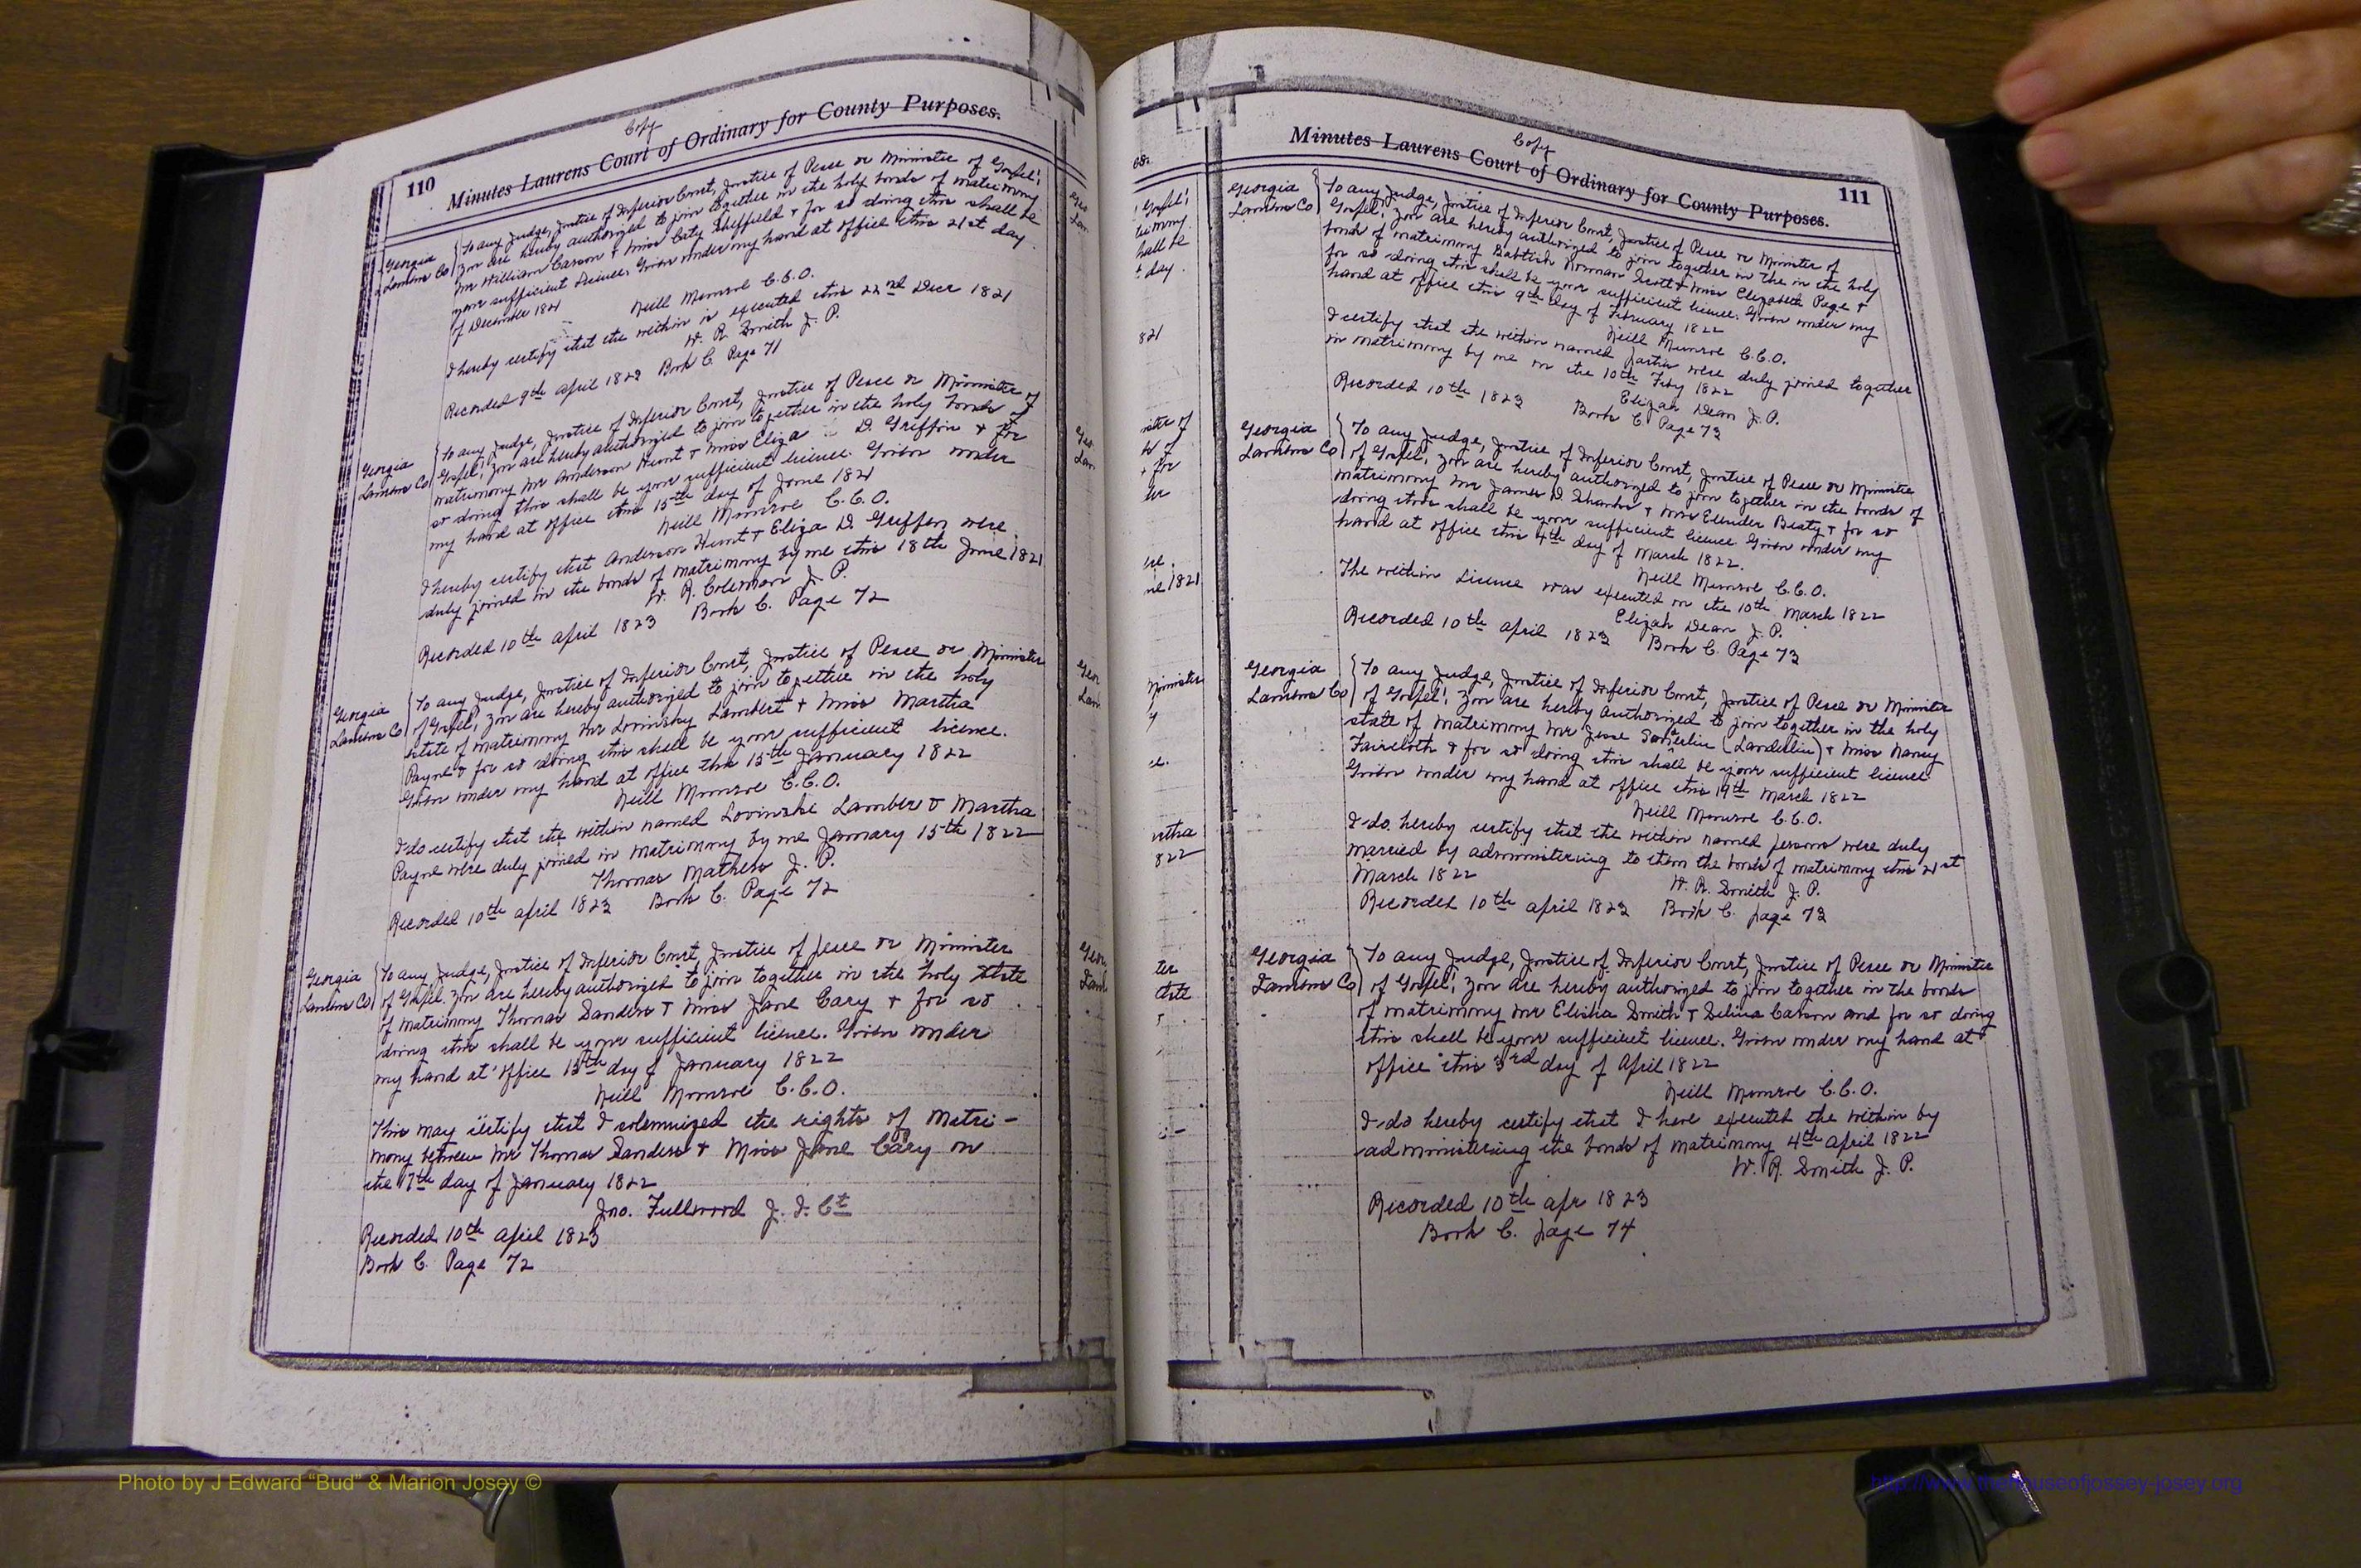 Copy
110 Minutes Laurens Court of Ordinary for County Purposes.
Georgia
Laurens Co
To any Judge, Justice of Inferior Court, Justice of Peace or Minister of Gospel;
you are hereby authorized to join together in the holy bonds of matrimony
Mr William Carson & Miss Caty Sheffield & for so doing this shall be
your sufficient licence. Given under my hand at office this 21st day
of December 1821
Neill Munroe C.C.O.
I hereby certify that the within is executed this 22nd Decr 1821
W. R. Smith J. P.
Recorded 9th april 1823 Book C. Page 71
Georgia
Laurens Co
To any Judge, Justice of Inferior Court, Justice of Peace or Minister of
Gospel; you are hereby authorized to join together in the holy bonds of
matrimony Mr Anderson Hunt & Miss Eliza D. Griffin & for
so doing this shall be your sufficient licence Given under
my hand at office this 15th day of June 1821
Neill Munroe C.C.O.
I hereby certify that Anderson Hunt & Eliza D. Griffin were
duly joined in the bonds of matrimony by me this 18th June 1821
W. R. Coleman J. P.
Recorded 10th april 1823 Book C. Page 72
Georgia
Laurens Co
To any Judge, Justice of Inferior Court, Justice of Peace or Minister
of Gospel; you are hereby authorized to join together in the holy
state of matrimony Mr Lovinsky Lambert & Miss Martha
Payne & for so doing this shall be your sufficient licence.
Given under my hand at office this 15th January 1822
Neill Munroe C.C.O.
I do certify that the within named Lovinske Lamber & Martha
Payne were duly joined in matrimony by me January 15th 1822
Thomas Mathews J. P.
Recorded 10th april 1823 Book C. Page 72
Georgia
Laurens Co
To any Judge, Justice of Inferior Court, Justice of peace or Minister
of Gospel. you are hereby authorized to join together in the holy state
of matrimony Thomas Sanders & Miss Jane Cary & for so
doing this shall be your sufficient licence. Given under
my hand at office 15th day of January 1822
Neill Munroe C.C.O.
This may certify that I solemnized the rights of Matri-
mony between Mr Thomas Sanders & Miss Jane Cary on
the 17th day of January 1822
Jno. Fullwood J. I. Ct
Recorded 10th april 1823
Book C. Page 72
Copy
Minutes Laurens Court of Ordinary for County Purposes. 111
Georgia
Laurens Co
To any Judge, Justice of Inferior Court, Justice of Peace or Minister of
Gospel; you are hereby authorized to join together in the in the holy
bonds of matrimony Norman Scott & Miss Elizabeth Page &
for so doing this shall be your sufficient licence. Given under my
hand at office this 9th day of February 1822
Neill Munroe C.C.O.
I certify that the within named parties were duly joined together
in matrimony by me on the 10th Feby 1822
Elijah Dean J. P.
Recorded 10th 1823 Book C. Page 73
Georgia
Laurens Co
To any Judge, Justice of Inferior Court, Justice of Peace or Minister
of Gospel; you are hereby authorized to join together in the bonds of
matrimony Mr James D. Shanks & Miss Ellender Beaty & for so
doing this shall be your sufficient licence Given under my
hand at office this 4th day of March 1822.
Neill Munroe C.C.O.
The within Licence was executed on the 10th March 1822
Elijah Dean J. P.
Recorded 10th april 1823 Book C. Page 73
Georgia
Laurens Co
To any Judge, Justice of Inferior Court, Justice of Peace or Minister
of Gospel; you are hereby authorized to join together in the holy
state of matrimony Mr Jesse (Landerlin) & Miss Nancy
Faircloth & for so doing this shall be your sufficient licence
Given under my hand at office this 19th March 1822
Neill Munroe C.C.O.
I do hereby certify that the within named persons were duly
married by administering to them the bonds of matrimony this 21st
March 1822
W. R. Smith J. P.
Recorded 10th april 1823 Book C. page 73
Georgia
Laurens Co
To any Judge, Justice of Inferior Court, Justice of Peace or Minister
of Gospel; you are hereby authorized to join together in the bonds
of matrimony Mr Elisha Smith & Selina Carson and for so doing
this shall be your sufficient licence. Given under my hand at
office this 3rd day of April 1822
Neill Munroe C.C.O.
I do hereby certify that I have executed the within by
administering the bonds of matrimony 4th april 1822
W. R. Smith J. P.
Recorded 10th apr 1823
Book C. page 74
Photo by J Edward “Bud” & Marion Josey ©
http://www.thehouseofjossey-josey.org